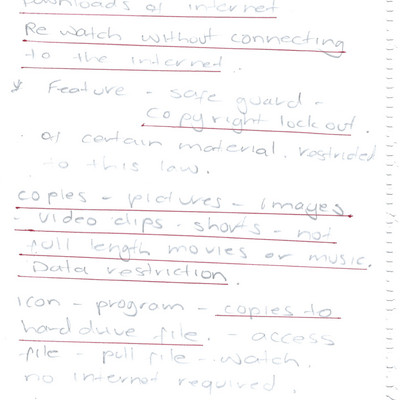 Downloads of internet
Re Watch without connecting
to the internet.
* Feature - safe guard -
copyright lock out.
. of certain material. restricted
to this law.
copies - pictures - images.
- video clips - shorts - not
full length movies or music.
Data restriction.
icon - program - copies to
hard drive file. - access
file - pull file - watch.
no internet required.